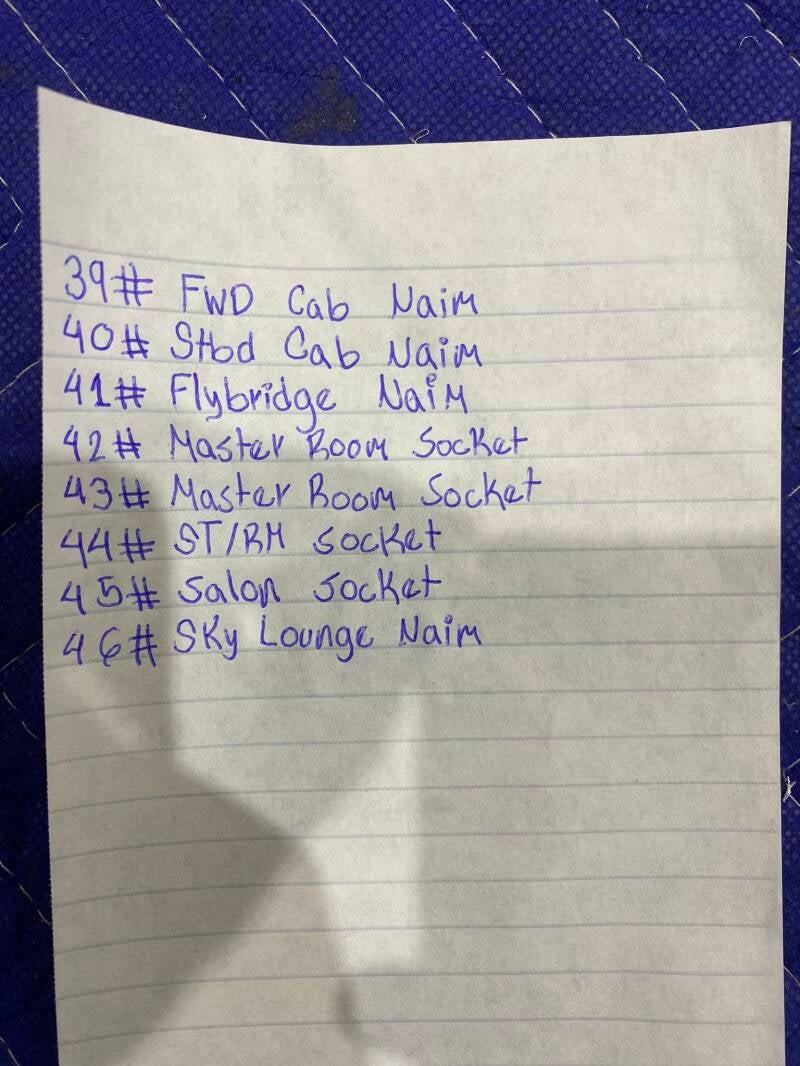 39# FWD Cab Naim
40# Stbd Cab Naim
41# Flybridge Naim
42# Master Room Socket
43# Master Room Socket
44# ST/RM Socket
45# Salon Socket
46# Sky Lounge Naim